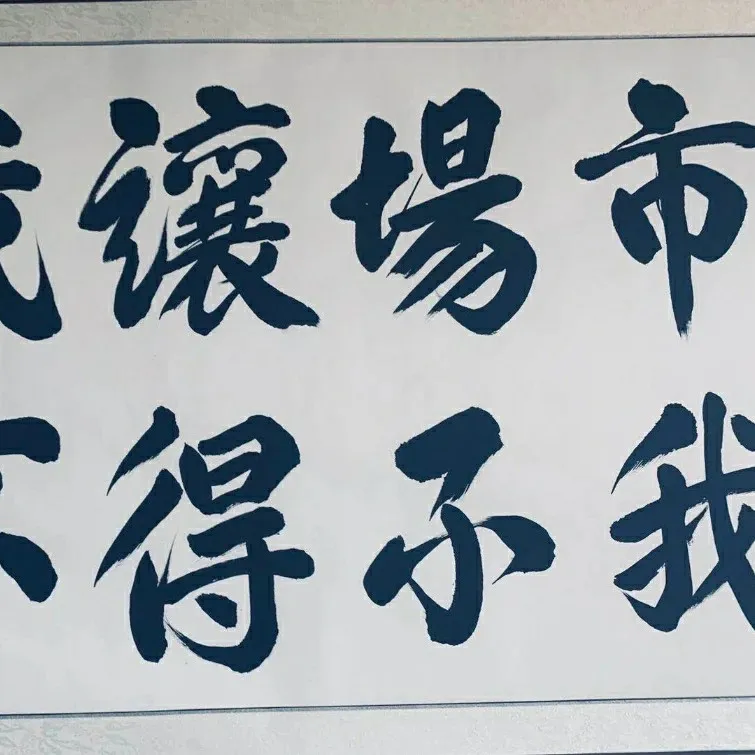 市場讓
我不得